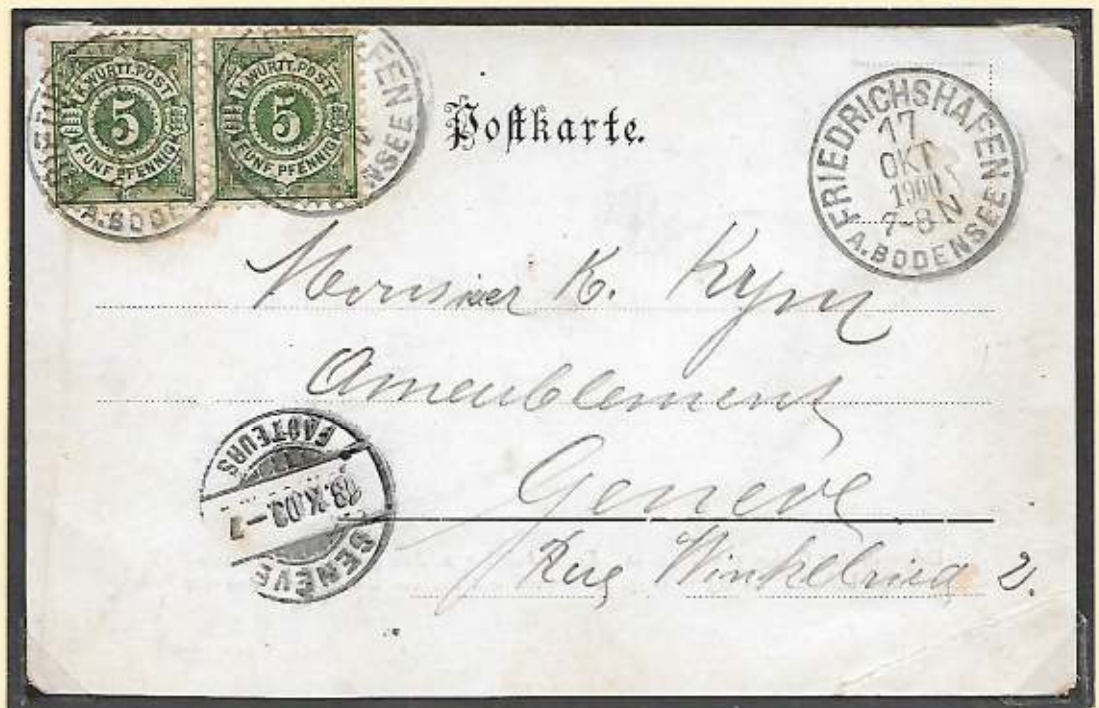 K. WÜRTT. POST
5
FÜNF PFENNIG
K. WÜRTT. POST
5
FÜNF PFENNIG
Postkarte.
FRIEDRICHSHAFEN
17
OKT
1900
7-8 N
A. BODENSEE
Monsieur K. Kym
Ameublement
Genève
Rue Winkelried 2.
FACTEURS
GENÈVE